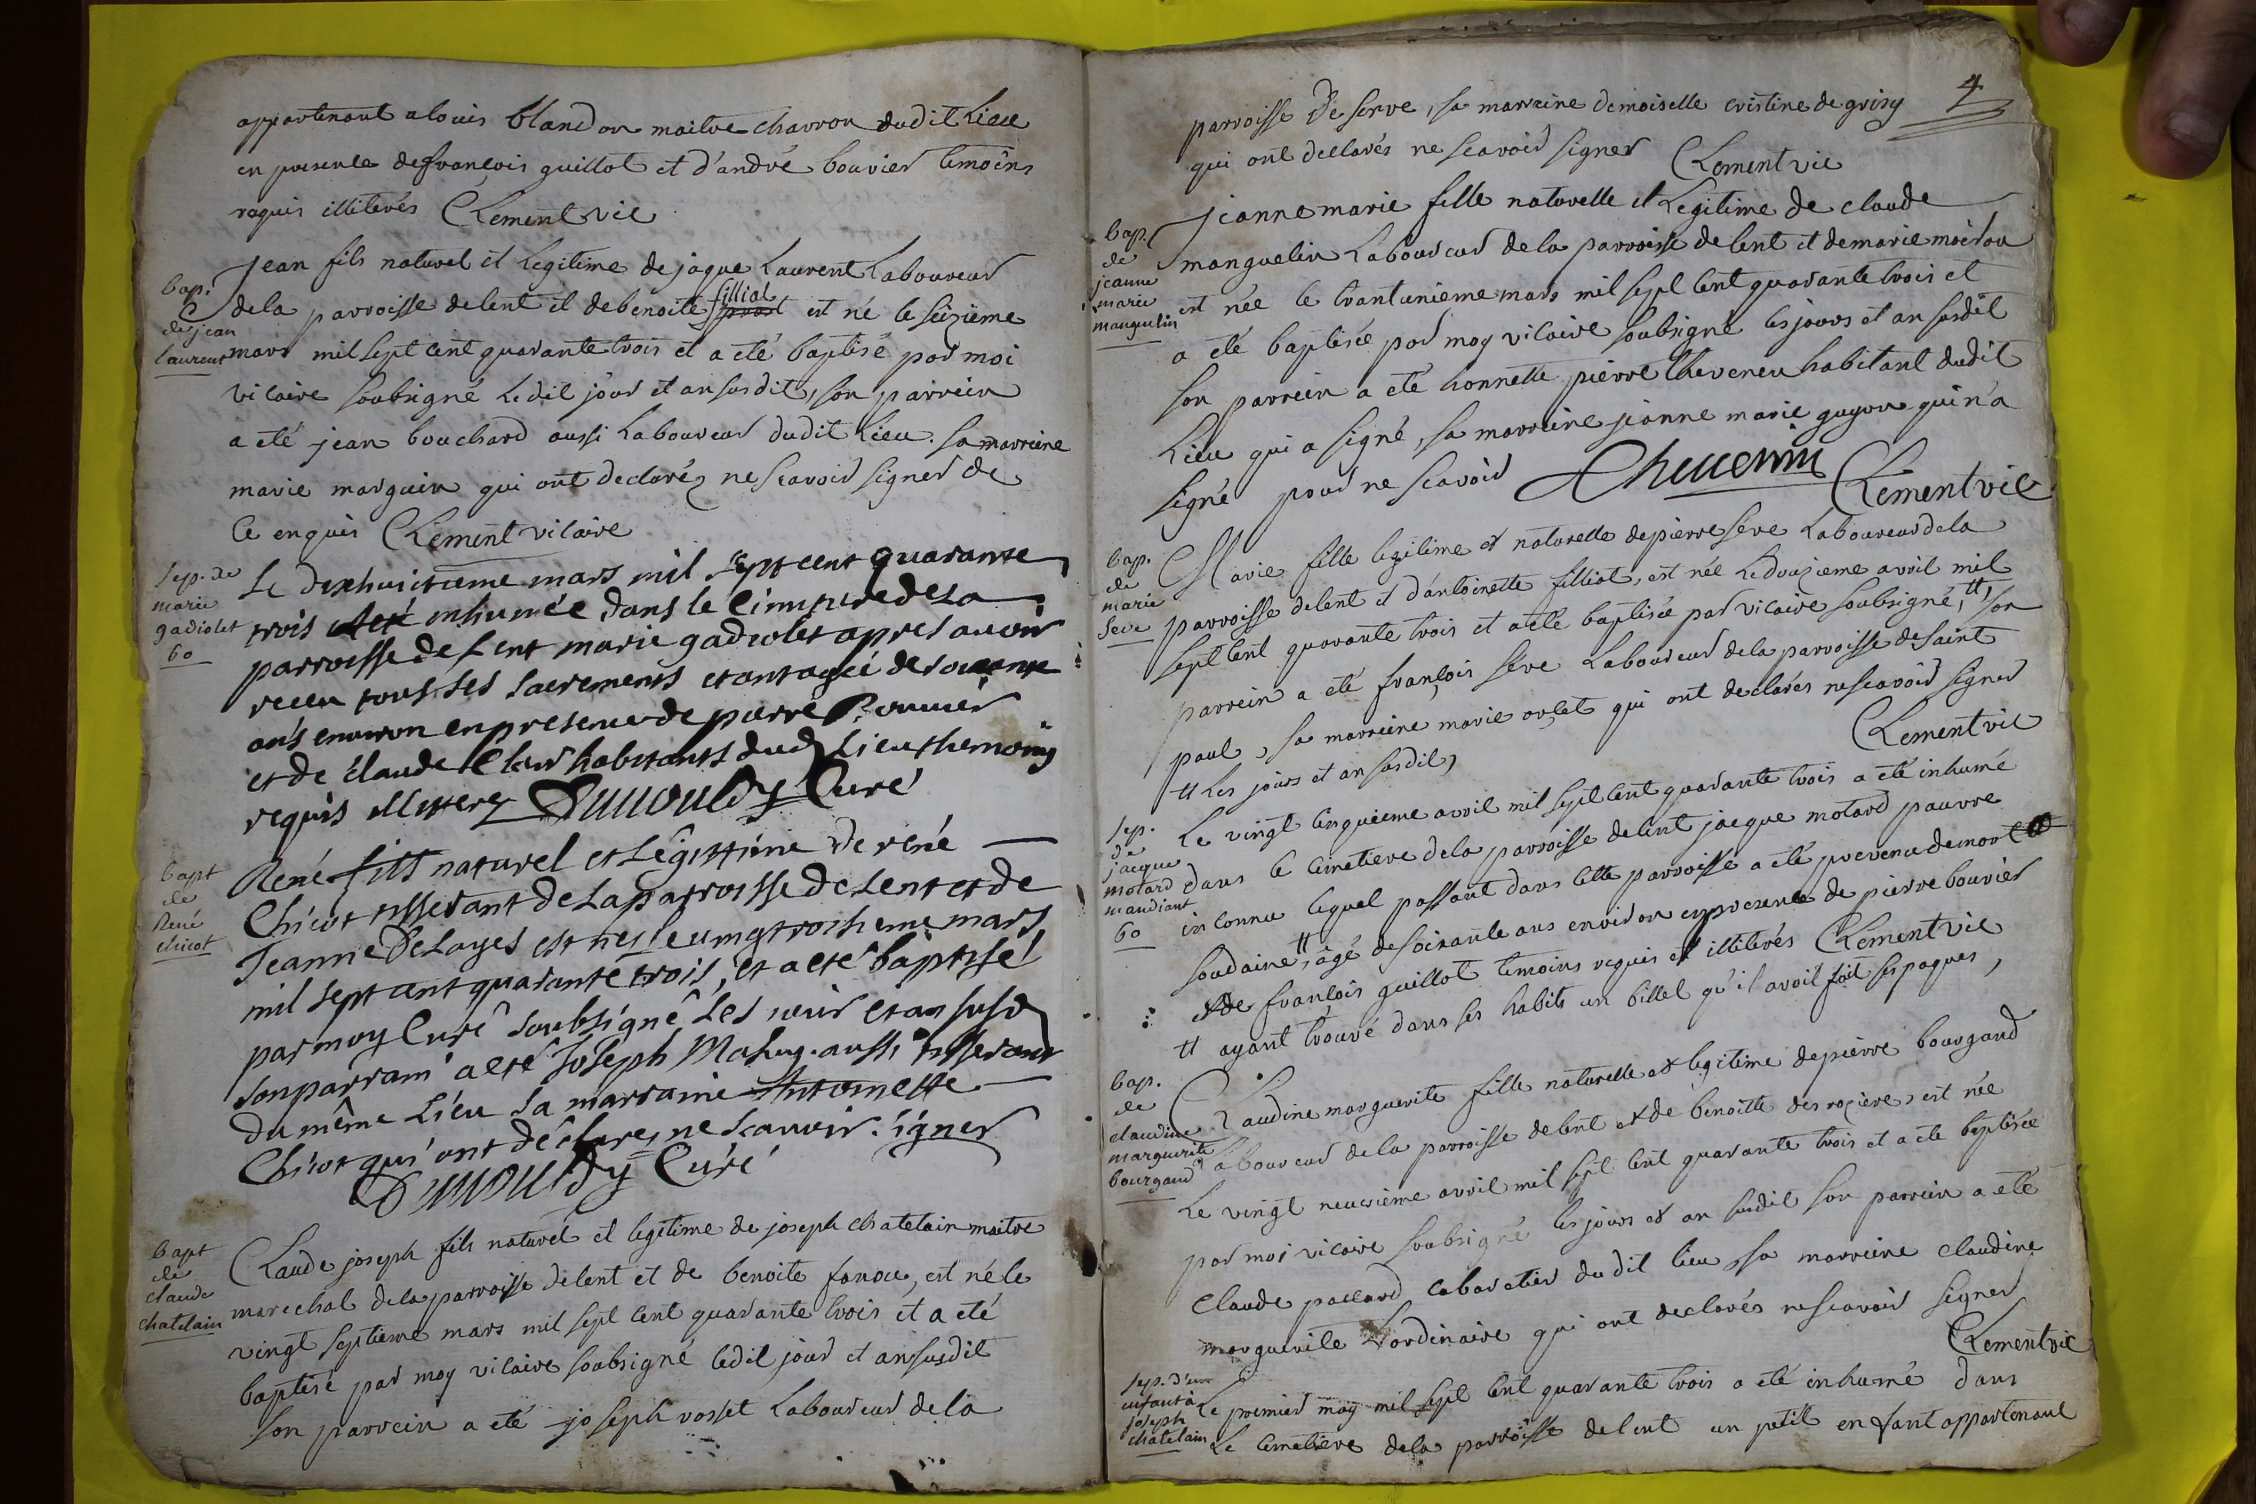 appartenant a louis blandon maitre charron dudit Lieu
en presence de françois guillot et d'andré bouvier temoins
requis illiterés Clement vic
bap.
de jean
laurent
Jean fils naturel et legitime de jaque Laurent Laboureur
de la parroisse de lent et de benoite filliat est né le seizieme
mars mil sept cent quarante trois et a eté baptisé par moi
vicaire soubsigné Ledit jour et an susdit, son parrein
a eté jean bouchard aussi Laboureur dudit Lieu. sa marreine
marie marguin qui ont declaréz ne scavoir signer de
ce enquis Clement vicaire
sep. de
marie
gadiolet
60
Le dixhuictieme mars mil sept cent quarante
trois a eté inhumée dans le Cimitiere de La
parroisse de Lent marie gadiolet apres avoir
receu tous ses sacrements etant agéé de soixante
ans environ en presence de pierre Bouvier
et de claude Clerc habitants dud Lieu themoins
requis illiterez Dumouldy Curé
bapt
de
René
chicot
René fils naturel et Légittime de réné
Chicot tisserant de La parroisse de Lent et de
Jeanne DeLayes est nes le vingt troisieme mars
mil sept cent quarante trois, et a eté baptissé
par moy Curé soubsigné Les jour et an susd
son parrain a eté Joseph Mahuy. aussi tisserant
du même Lieu sa marraine Antoinette
Chicot qui ont déclarez ne scavoir signer
Dumouldy Curé
bapt
de
claude
chatelain
Claude joseph fils naturel et legitime de joseph chatelain maitre
marechal de la parroisse de lent et de benoite fanou, est né le
vingt septieme mars mil sept cent quarante trois et a eté
baptisé par moy vicaire soubsigné ledit jour et an susdit
son parrein a eté joseph rosset Laboureur de la
4
parroisse de serve, sa marreine demoiselle cristine de grisy
qui ont declarés ne scavoir signer Clement vic
bap.
de
jeanne
marie
manguelin
jeanne marie fille naturelle et Legitime de claude
manguelin Laboureur de la parroisse de lent et de marie moiron
est née le trantunieme mars mil sept cent quarante trois et
a eté baptisée par moy vicaire soubsigné les jours et an susdit
son parrein a eté honnette pierre thevenin habitant dudit
Lieu qui a signé, sa marreine jeanne marie guyon qui n'a
signé pour ne scavoir Thevenin Clement vic
bap.
de
marie
seve
Marie fille legitime et naturelle de pierre seve Laboureur de la
parroisse de lent et d'antoinette filliat, est née Le douzieme avril mil
sept cent quarante trois et a eté baptisée par vicaire soubsigné, tt, son
parrein a eté françois seve Laboureur de la parroisse de saint
paul, sa marreine marie orset qui ont declarés ne scavoir signer
tt Les jours et an susdit, Clement vic
sep.
de
jacque
motard
mandiant
60
Le vingt cinquieme avril mil sept cent quarante trois a eté inhumé
dans le cimetiere de la parroisse de lent jacque motard pauvre
inconnu lequel passant dans cette parroisse a eté prevenu de mort
soudaine, tt agé de soixante ans environ en presence de pierre bouvier
et de françois guillot temoins requis et illiterés Clement vic
tt ayant trouvé dans ses habits un billet qu'il avoit fait ses paques,
bap.
de
claudine
marguerite
bourgaud
Claudine marguerite fille naturelle et legitime de pierre bourgaud
Laboureur de la parroisse de lent et de benoitte des rozieres, est née
Le vingt neuvieme avril mil sept cent quarante trois et a ete baptisée
par moi vicaire soubsigné les jours et an susdit son parrein a eté
Claude paccard cabaretier dudit lieu, sa marreine claudine
marguerite Lordinaire qui ont declarés ne scavoir signer
Clement vic
sep. d'un
enfant à
joseph
chatelain
Le premier may mil sept cent quarante trois a eté inhumé dans
Le cimetiere de la parroisse de lent un petit enfant appartenant